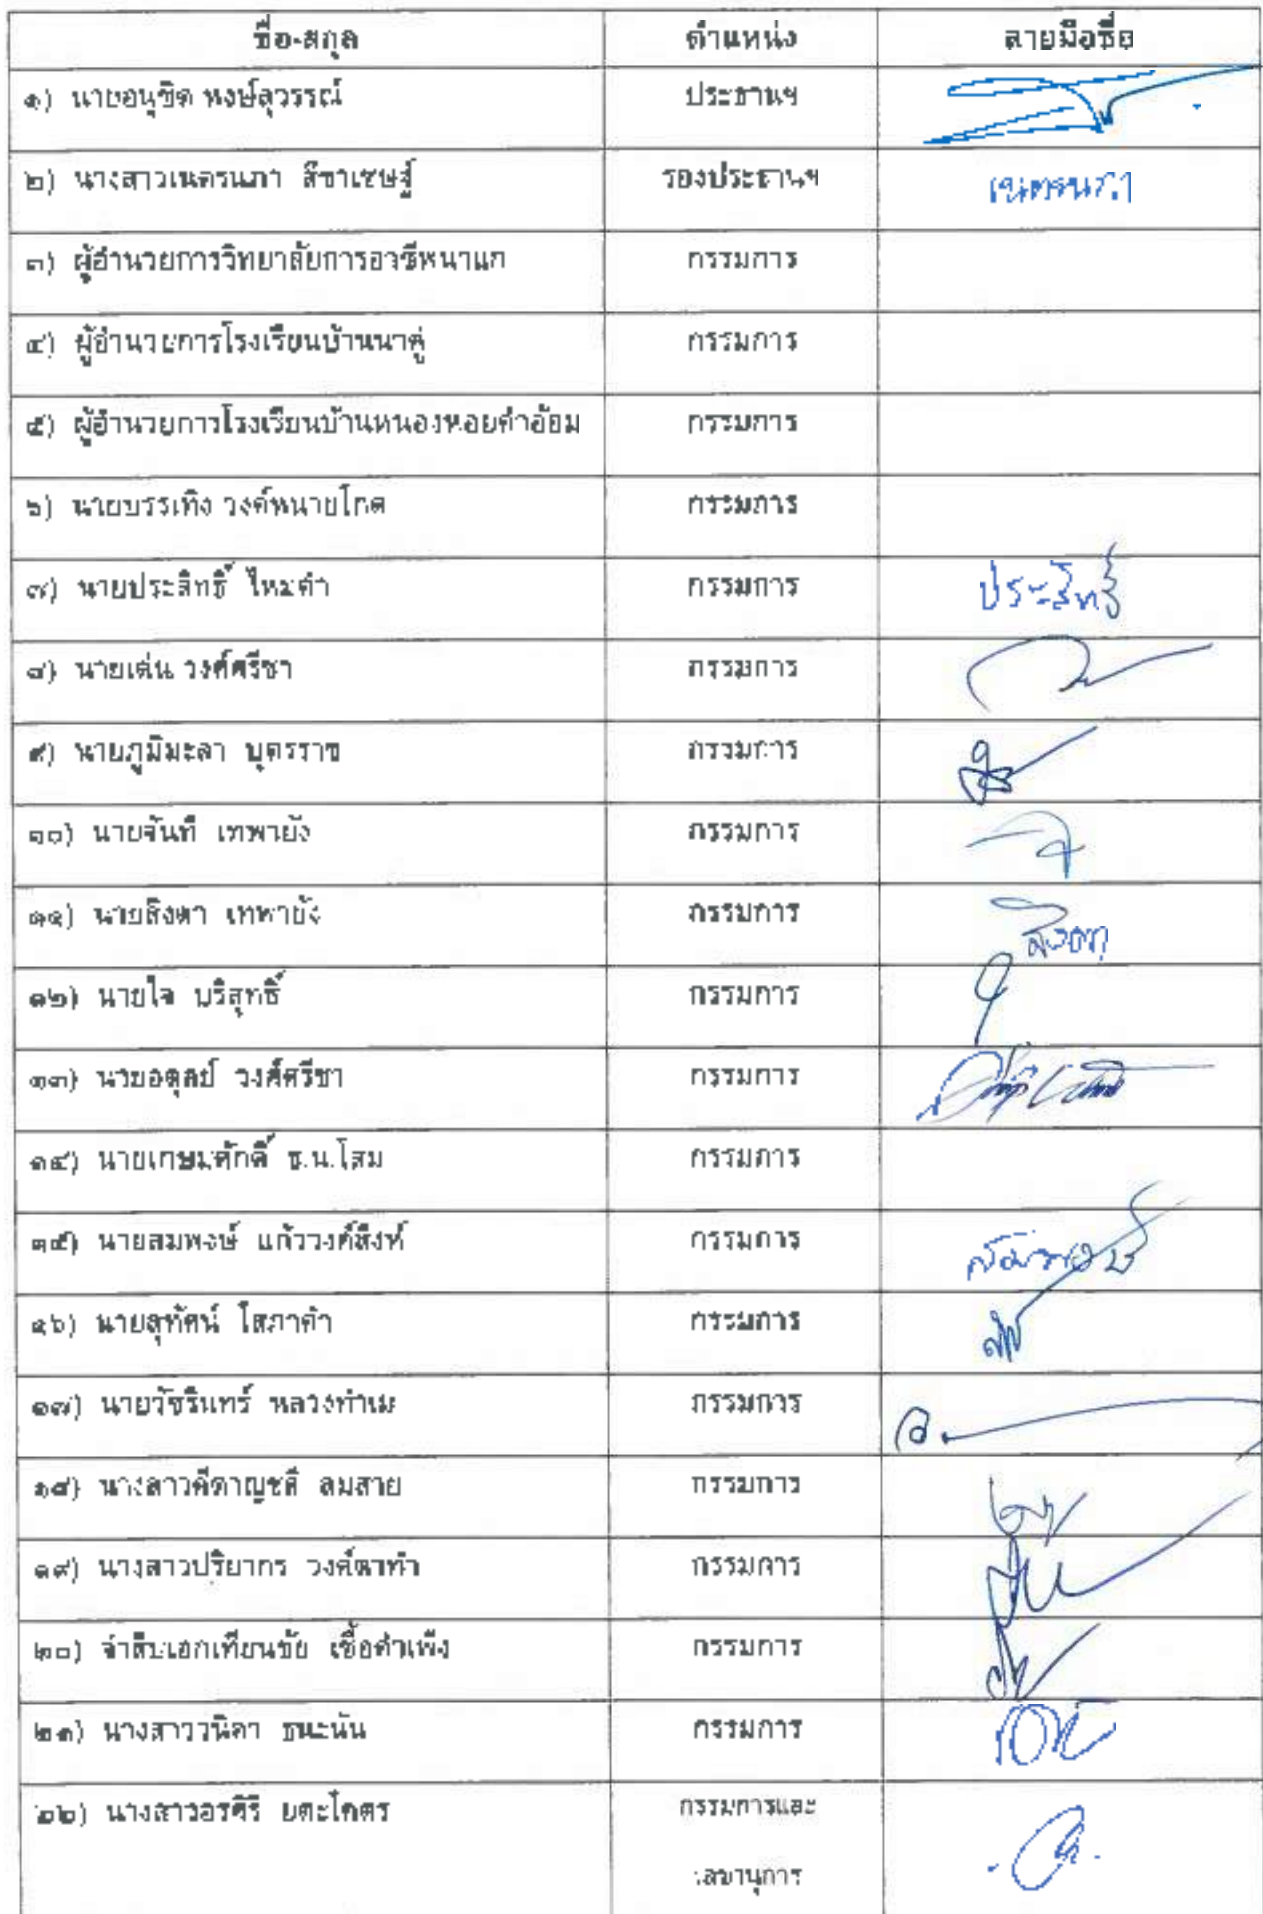 ชื่อ-สกุล ตำแหน่ง ลายมือชื่อ
๑) นายอนุชิต หงษ์สุวรรณ์ ประธานฯ
๒) นางสาวเนตรนภา สีชาเชษฐ์ รองประธานฯ เนตรนภา
๓) ผู้อำนวยการวิทยาลัยการอาชีพนาแก กรรมการ
๔) ผู้อำนวยการโรงเรียนบ้านนาคู่ กรรมการ
๕) ผู้อำนวยการโรงเรียนบ้านหนองหอยคำอ้อม กรรมการ
๖) นายบรรเทิง วงค์หนายโกด กรรมการ
๗) นายประสิทธิ์ ไหมคำ กรรมการ ประสิทธิ์
๘) นายเด่น วงศ์ศรีชา กรรมการ
๙) นายภูมิมะลา บุตรราช กรรมการ
๑๐) นายจันที เทพายัง กรรมการ
๑๑) นายสิงดา เทพายัง กรรมการ สิงดา
๑๒) นายใจ บริสุทธิ์ กรรมการ
๑๓) นายอดุลย์ วงศ์ศรีชา กรรมการ
๑๔) นายเกษมศักดิ์ ธ.น.โสม กรรมการ
๑๕) นายสมพงษ์ แก้ววงค์สิงห์ กรรมการ สมพงษ์
๑๖) นายสุทัศน์ โสภาคำ กรรมการ
๑๗) นายวัชรินทร์ หลวงทำเม กรรมการ
๑๘) นางสาว ลมสาย กรรมการ
๑๙) นางสาวปริยากร วงค์ตาทำ กรรมการ
๒๐) จ่าสิบเอกเทียนชัย เชื้อคำเพ็ง กรรมการ
๒๑) นางสาววนิดา ธนะนัน กรรมการ
๒๒) นางสาวอรศิริ ยตะโคตร กรรมการและ
เลขานุการ